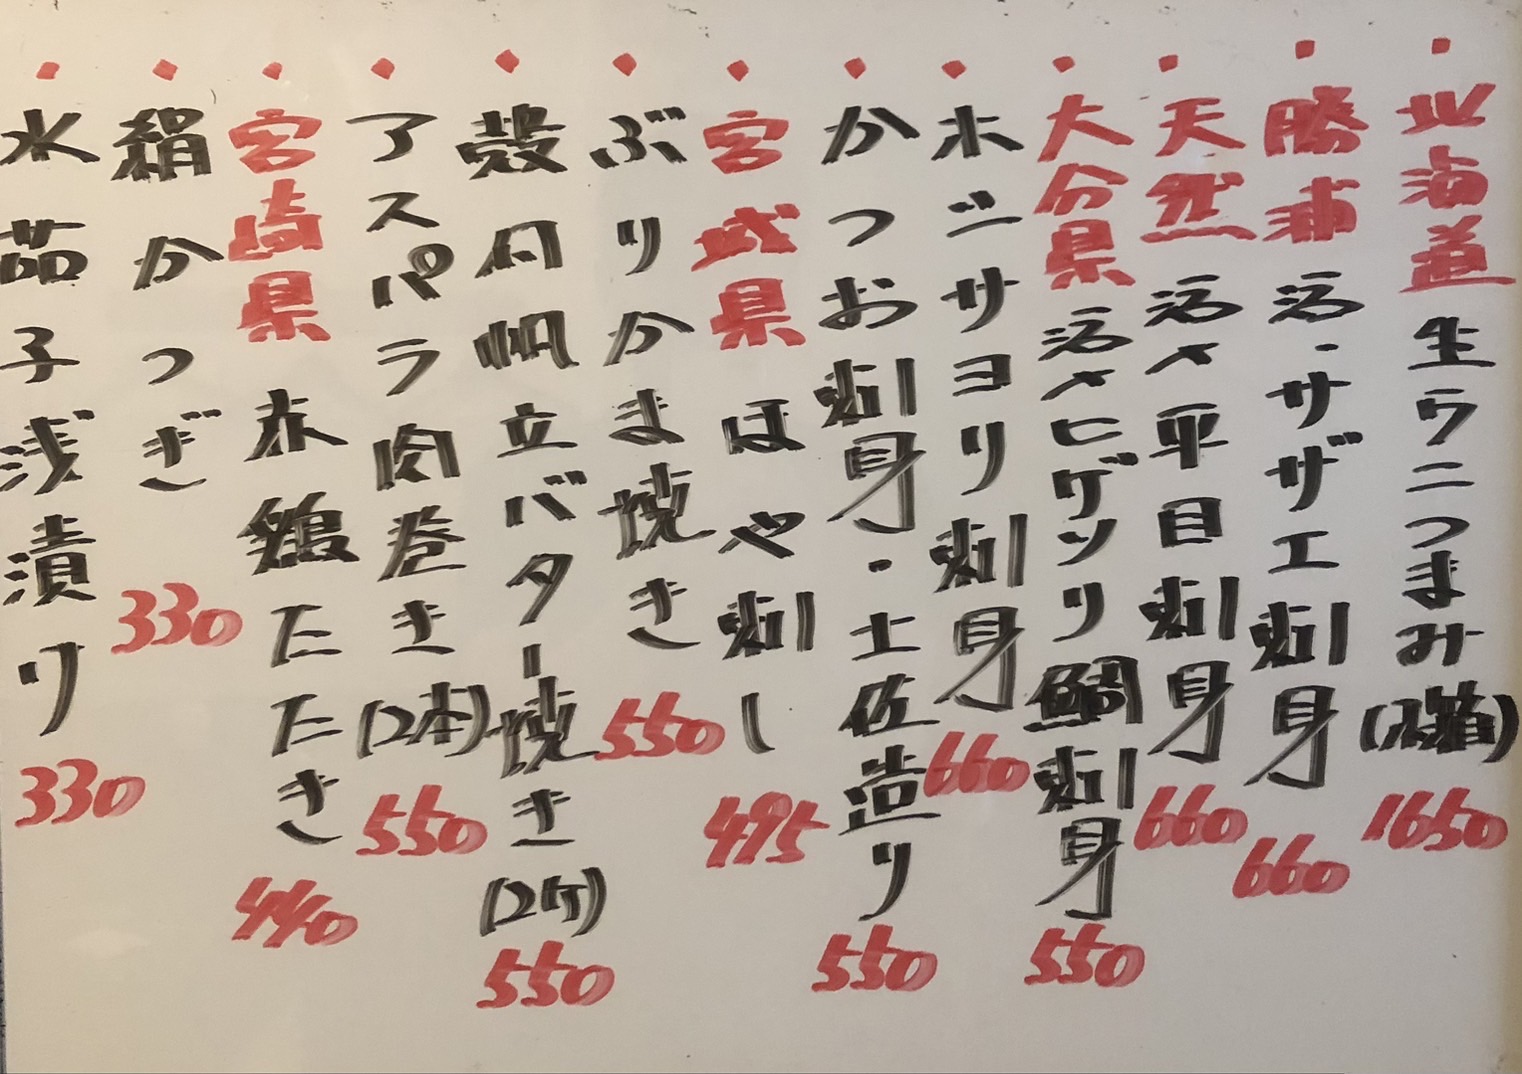 北海道生ウニつまみ(1箱)1650
勝浦活・サザエ刺身660
天然活〆平目刺身660
大分県活〆ヒゲソリ鯛刺身550
ホンサヨリ刺身660
かつお刺身・土佐造り550
宮城県ほや刺し495
ぶりかま焼き550
殻付帆立バター焼き(2ケ)550
アスパラ肉巻き(2本)550
宮崎県赤鶏たたき440
絹かつぎ330
水茄子浅漬り330